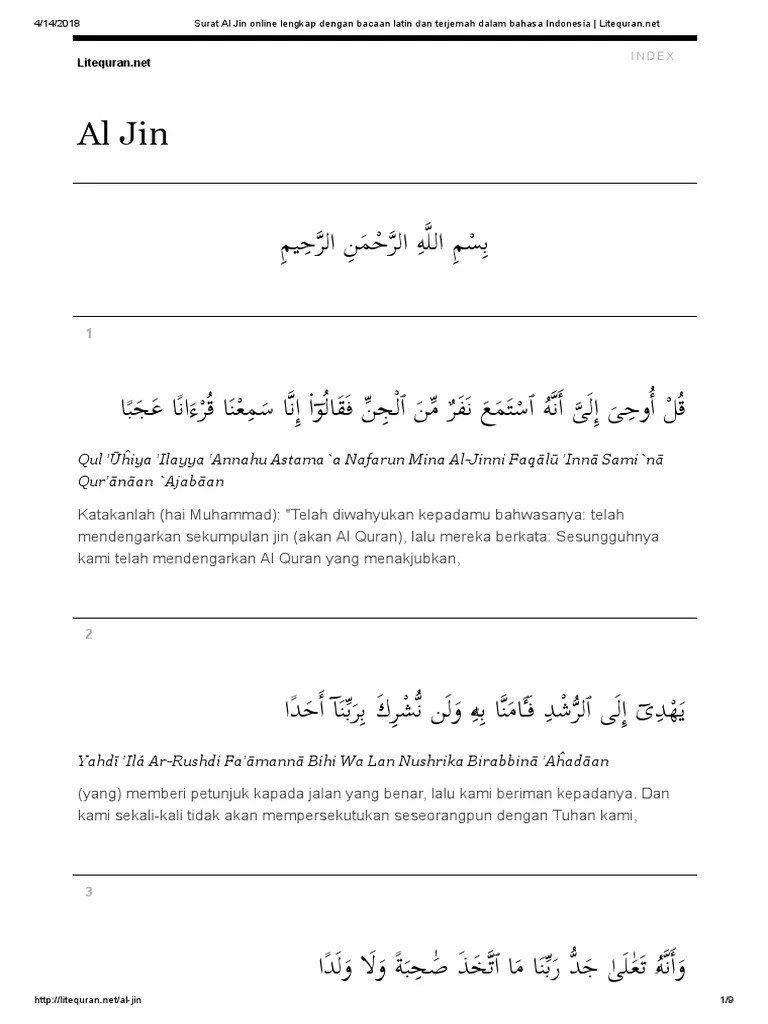 4/14/2018 Surat Al Jin online lengkap dengan bacaan latin dan terjemah dalam bahasa Indonesia | Litequran.net
Litequran.net INDEX
Al Jin
بِسْمِ اللَّهِ الرَّحْمَنِ الرَّحِيمِ
1
قُلْ أُوحِىَ إِلَىَّ أَنَّهُ ٱسْتَمَعَ نَفَرٌ مِّنَ ٱلْجِنِّ فَقَالُوٓا۟ إِنَّا سَمِعْنَا قُرْءَانًا عَجَبًا
Qul 'Ūĥiya 'Ilayya 'Annahu Astama`a Nafarun Mina Al-Jinni Faqālū 'Innā Sami`nā
Qur'ānāan `Ajabāan
Katakanlah (hai Muhammad): "Telah diwahyukan kepadamu bahwasanya: telah
mendengarkan sekumpulan jin (akan Al Quran), lalu mereka berkata: Sesungguhnya
kami telah mendengarkan Al Quran yang menakjubkan,
2
يَهْدِىٓ إِلَى ٱلرُّشْدِ فَـَٔامَنَّا بِهِۦ وَلَن نُّشْرِكَ بِرَبِّنَآ أَحَدًا
Yahdī 'Ilá Ar-Rushdi Fa'āmannā Bihi Wa Lan Nushrika Birabbinā 'Aĥadāan
(yang) memberi petunjuk kapada jalan yang benar, lalu kami beriman kepadanya. Dan
kami sekali-kali tidak akan mempersekutukan seseorangpun dengan Tuhan kami,
3
وَأَنَّهُۥ تَعَٰلَىٰ جَدُّ رَبِّنَا مَا ٱتَّخَذَ صَٰحِبَةً وَلَا وَلَدًا
http://litequran.net/al-jin 1/9